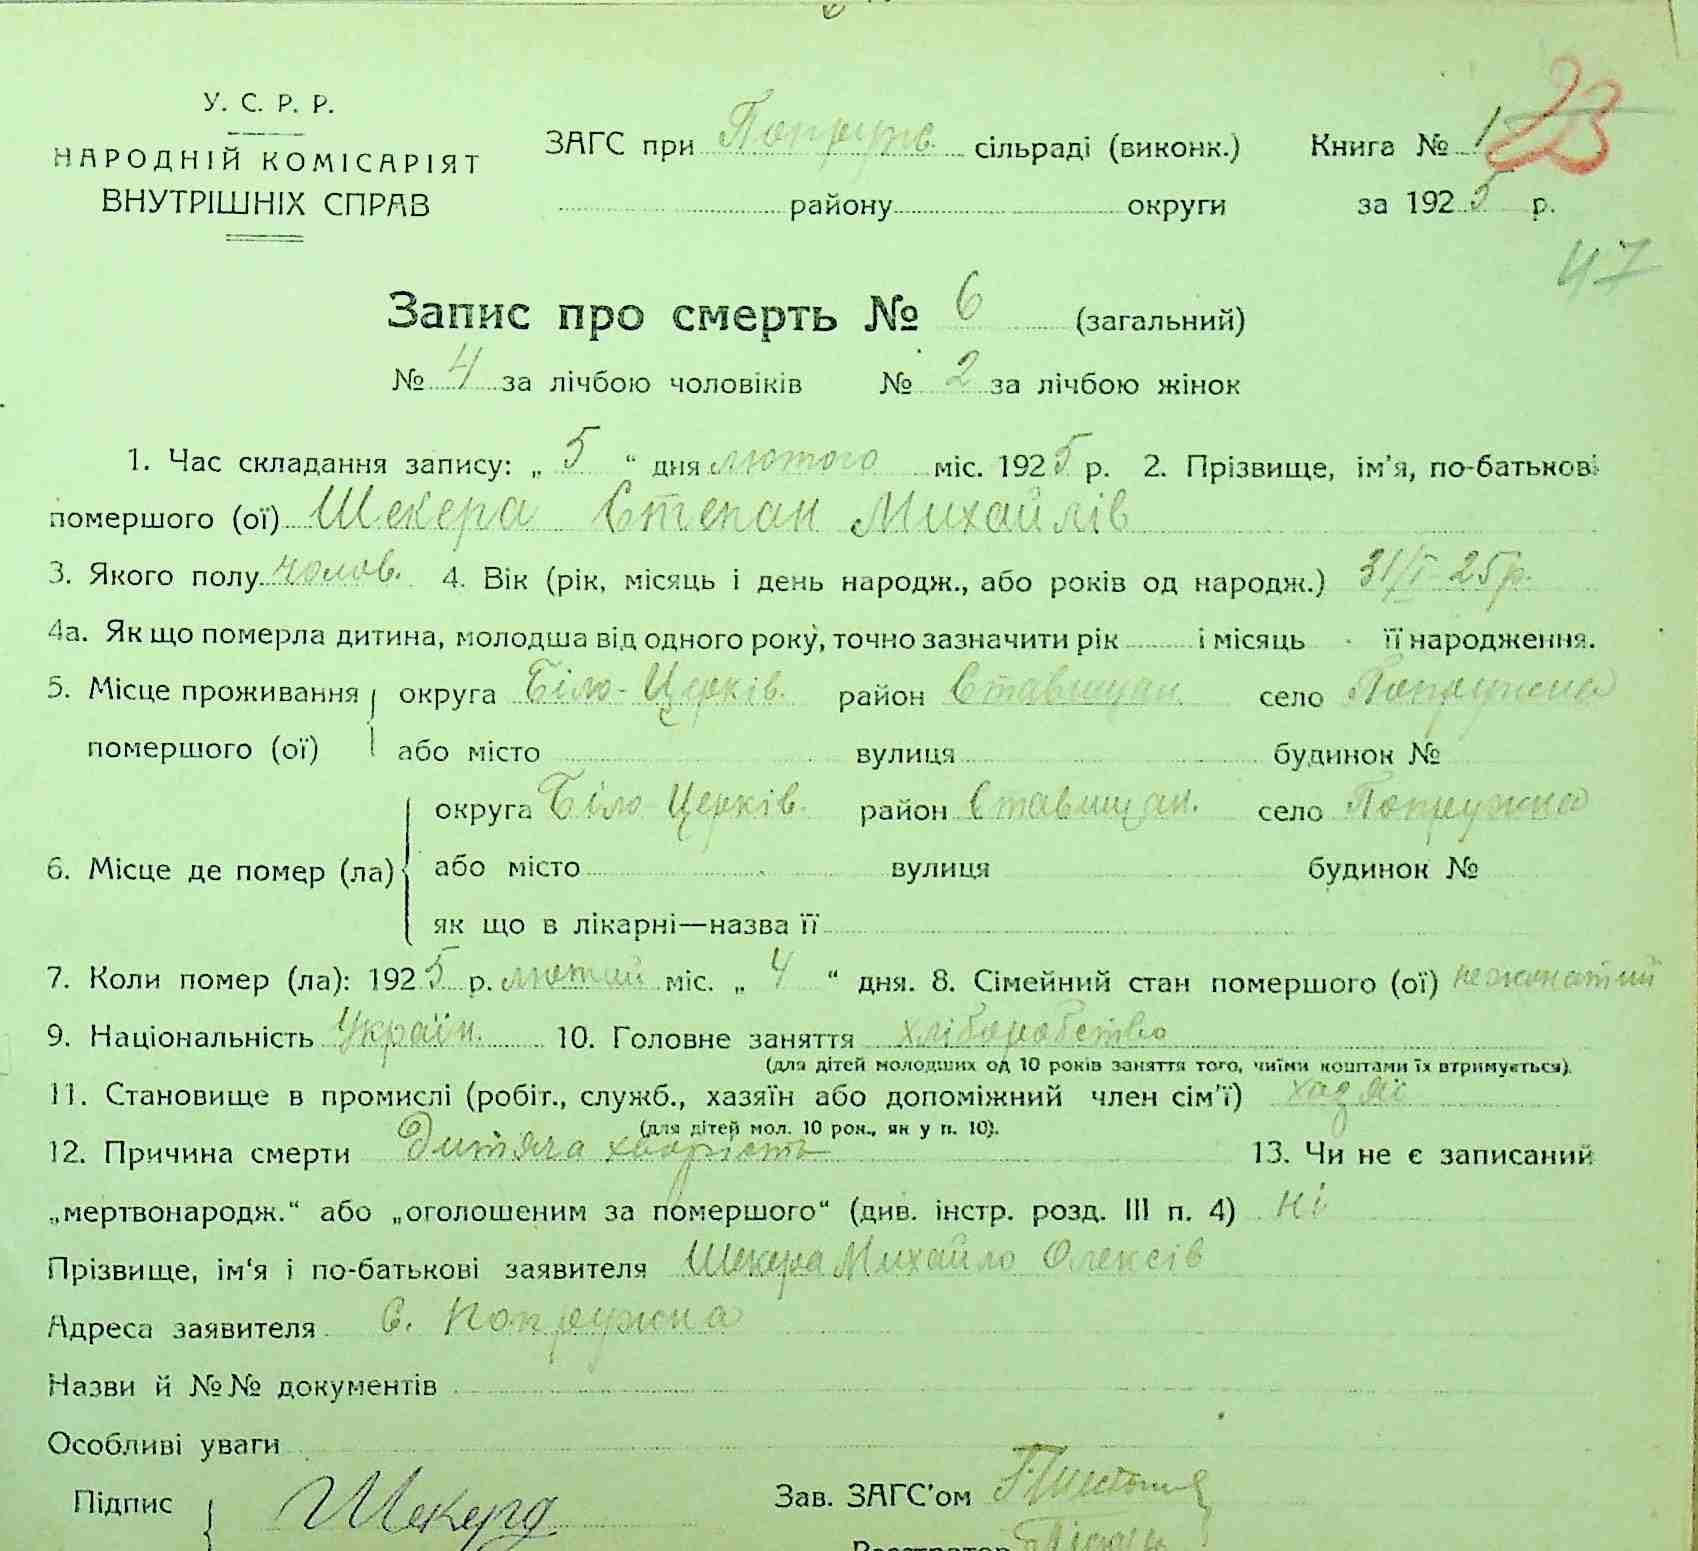 У. С. Р. Р.
НАРОДНІЙ КОМІСАРІЯТ
ВНУТРІШНІХ СПРАВ
ЗАГС при Попруж. сільраді (виконк.) Книга № 1
району округи за 1925 р.
23
47
Запис про смерть № 6 (загальний)
№ 4 за лічбою чоловіків № 2 за лічбою жінок
1. Час складання запису: „ 5 “ дня лютого міс. 1925 р. 2. Прізвище, ім'я, по-батькові
помершого (ої) Шекера Степан Михайлів
3. Якого полу чолов. 4. Вік (рік, місяць і день народж., або років од народж.) 31/I-25р.
4а. Як що померла дитина, молодша від одного року, точно зазначити рік і місяць її народження.
5. Місце проживання округа Біло-Церків. район Ставищан. село Попружна
помершого (ої) або місто вулиця будинок №
округа Біло Церків. район Ставищан. село Попружна
6. Місце де помер (ла) або місто вулиця будинок №
як що в лікарні—назва її
7. Коли помер (ла): 1925 р. лютий міс. „ 4 “ дня. 8. Сімейний стан помершого (ої) нежонатий
9. Національність Україн. 10. Головне заняття хліборобство
(для дітей молодших од 10 років заняття того, чиїми коштами їх втримується).
11. Становище в промислі (робіт., служб., хазяїн або допоміжний член сім'ї) хазяї
(для дітей мол. 10 рок., як у п. 10).
12. Причина смерти Дитяча хворість 13. Чи не є записаний
„мертвонародж.“ або „оголошеним за помершого“ (див. інстр. розд. III п. 4) ні
Прізвище, ім'я і по-батькові заявителя Шекера Михайло Олексів
Адреса заявителя С. Попружна
Назви й №№ документів
Особливі уваги
Підпис Шекера Зав. ЗАГС'ом
Реєстратор